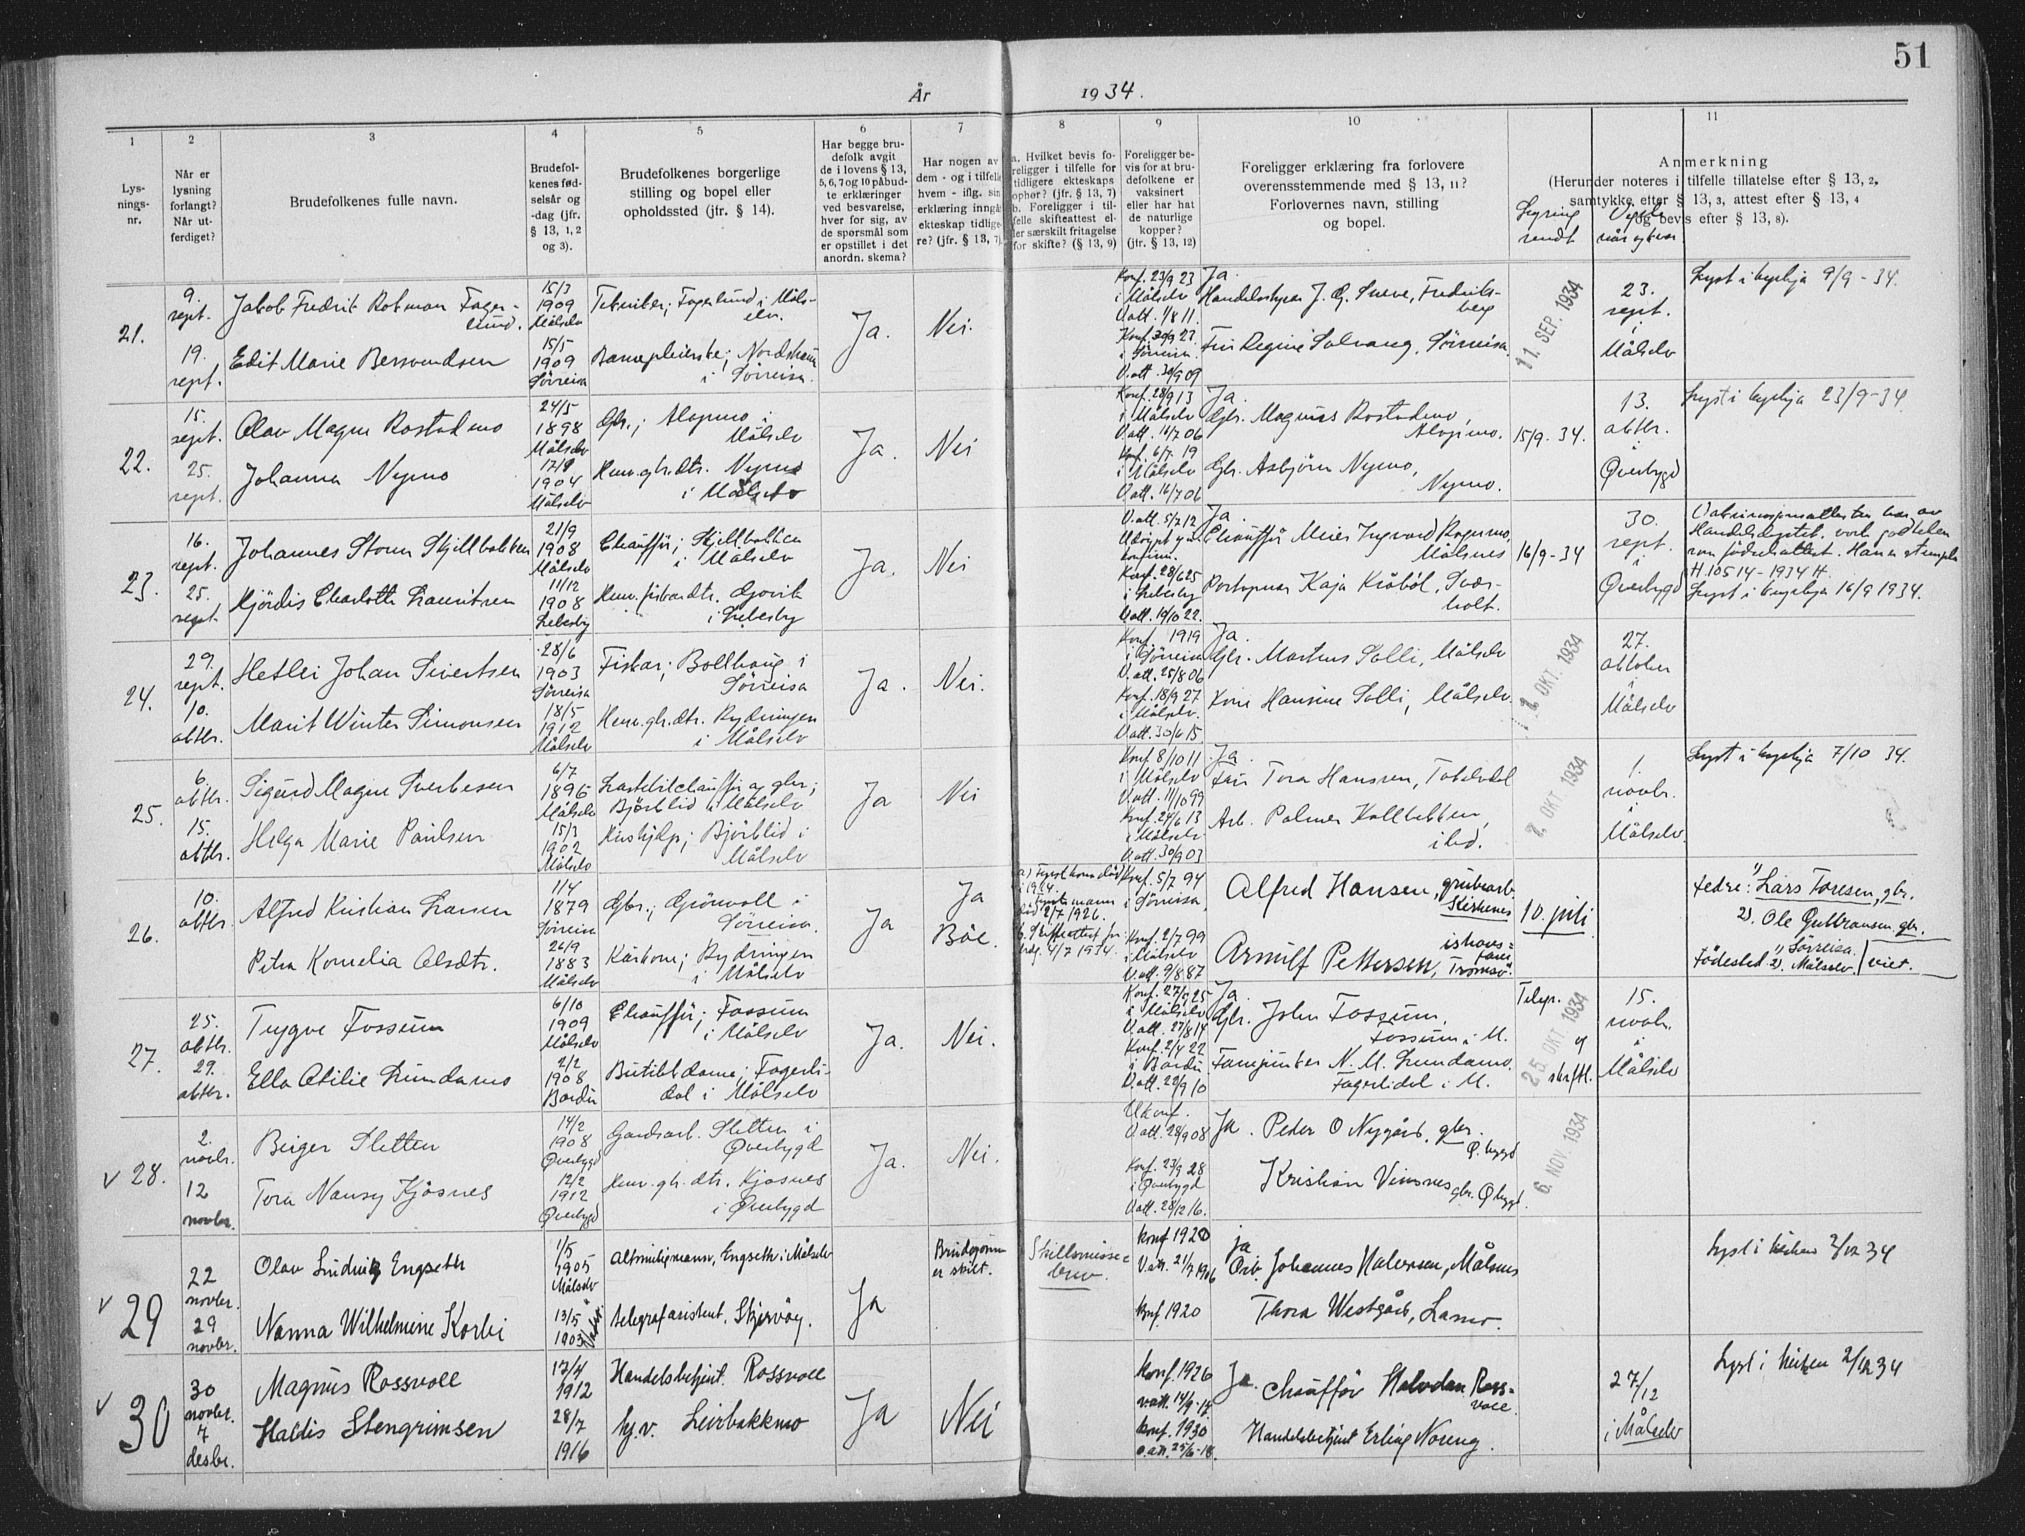 51
År 1934.
1
2
3
4
5
6
7
8
9
10
11
Lys-
nings-
nr.
Når er
lysning
forlangt?
Når ut-
ferdiget?
Brudefolkenes fulle navn.
Brudefol-
kenes fød-
selsår og
-dag (jfr.
§ 13, 1, 2
og 3).
Brudefolkenes borgerlige
stilling og bopel eller
opholdssted (jfr. § 14).
Har begge bru-
defolk avgit
de i lovens § 13,
5, 6, 7 og 10 påbud-
te erklæringer
ved besvarelse,
hver for sig, av
de spørsmål som
er opstillet i det
anordn. skema?
Har nogen av
dem - og i tilfelle
hvem - iflg. sin
erklæring inngå
ekteskap tidlige-
re? (jfr. § 13, 7)
a. Hvilket bevis fo-
religger i tilfelle for
tidligere ekteskaps
ophør? (jfr. § 13, 7)
b. Foreligger i til-
felle skifteattest el-
ler særskilt fritagelse
for skifte? (§ 13, 9)
Foreligger be-
vis for at bru-
defolkene er
vaksinert
eller har hat
de naturlige
kopper?
(jfr. § 13, 12)
Foreligger erklæring fra forlovere
overensstemmende med § 13, 11?
Forlovernes navn, stilling
og bopel.
Anmerkning
(Herunder noteres i tilfelle tillatelse efter § 13, 2,
samtykke efter § 13, 3, attest efter § 13, 4
og bevis efter § 13, 8).
Lysning
sendt
Viede
når og hvor
21.
9.
sept.
19.
sept.
Jakob Fredrik Rotmon Fager-
lund.
Edit Marie Bersvendsen
15/3
1909
Målselv
15/5
1909
Sörreisa
Tekniker; Fagerlund i Måls-
elv.
Barnepleierske; Nordstrann
i Sörreisa.
Ja.
Nei.
Konf. 23/9 23
i Målselv
V.att. 1/8 11.
i Sörreisa.
V.att. 30/9 09
Ja.
Handelsstyrer J. G. Sneve, Fredriks-
berg
Fru Regine Solvang, Sörreisa.
11. SEP. 1934
23.
sept.
i
Målselv
Lyst i kyrkja 9/9 - 34.
22.
15.
sept.
25.
sept.
Olav Magne Rostadmo
Johanna Nymo
24/5
1898
Målselv
1904
Målselv
Gbr.; Alapmo i
Målselv
Hem. gbr.dtr. Nymo
i Målselv
Ja.
Nei
Konf. 28/9 13
i Målselv
V.att. 14/7 06
Konf. 6/7 19
i Målselv
V.att. 16/7 06
Ja.
Gbr. Magnus Rostadmo,
Alapmo.
Gbr. Asbjörn Nymo,
Nymo.
15/9 - 34.
13.
oktbr.
i
Øverbygd
Lyst i kyrkja 23/9 - 34.
23.
16.
sept.
25.
sept.
Johannes Storm Skjellbakken
Hjördis Charlotte Lauritsen
21/9
1908
Målselv
11/12
1908
Lebesby
Chauffür; Skjellbakken
i Målselv
Hem. fiskardtr. Gjovik
i Lebesby
Ja.
Nei
V.att. 5/7 12
Konf. 28/6 25
i Lebesby
V.att. 19/10 22.
Ja.
Chauffür Meier Ingvard Rognmo,
Målsnes
Portopnar Kaja Kråböl, Svar-
holt.
16/9 - 34
30.
sept.
i
Øverbygd
H 10514 - 1934 H.
Lyst i kyrkja 16/9 1934.
24.
29.
sept.
10.
oktbr.
Hetlei Johan Sivertsen
Marit Winter Simonsen
28/6
1903
Sörreisa
18/5
1912
Målselv
Fiskar; Bolthaug i
Sörreisa
Hem. gbr.dtr. Rydningen
i Målselv
Ja.
Nei.
Konf. 1919
i Sörreisa
V.att. 25/8 06
Konf. 18/9 27
i Målselv.
V.att. 30/6 15
Ja.
Gbr. Martnus Solli, Målselv
Kone Hansine Solli, Målselv.
OKT. 1934
27.
oktober
i
Målselv
25.
6.
oktbr.
15.
oktbr.
Sigurd Magne Sverkesen
Helga Marie Paulsen
6/7
1896
Målselv
15/3
1902
Målselv
Lastebilchauffür og gbr;
Björklid i Målselv
Hushjelp; Björklid i
Målselv
Ja
Nei
Konf. 8/10 11
i Målselv
V.att. 11/10 99
i Målselv
V.att. 30/9 03
Ja.
Fru Tora Hansen, Tokdal
Arb. Palmer Kollbekken,
i bd.
OKT 1934
1.
novbr.
i
Målselv.
Lyst i kyrkja 7/10 34.
26.
10.
oktbr.
Alfred Kristian Larsen
Petra Kornelia Olsdtr.
1/4
1879
Sörreisa
26/9
1883
Målselv
Gbr.; Grönvoll i
Sörreisa.
Kårkone; Rydningen
i Målselv
Ja
Ja
Båe.
i 1924.
død 2/7 1926.
4/7 1934.
Konf. 5/7 94
i Sörreisa,
Konf. 2/7 99
i Målselv
V.att. 9/8 87
Alfred Hansen, grubearb.
Kirkenes
Arnulf Pettersen, ishavs-
Tromsö.
10. juli
Fedre: 1) Lars Toresen, gbr.
2). Ole Gulbransen gbr.
Fødested 1) Sörreisa
2). Målselv.
viet.
27.
25.
oktbr.
29.
oktbr.
Trygve Fossum
Ella Otilie Lundamo
6/10
1909
Målselv
2/2
1908
Bardu
Chauffür; Fossum
i Målselv
Butikkdame; Fagerli-
dal i Målselv
Ja.
Nei.
i Målselv
V.att. 27/8 14
Konf. 2/4 22
i Bardu
V.att. 22/9 10
Ja.
Gbr. John Fossum,
Fossum i M.
Fanejunker N. M. Lundamo
Fagerlidal i M.
Telegr.
og
skriftl.
25. OKT 1934
15.
novbr.
i
Målselv
v 28.
2.
novbr.
12
novbr.
Birger Sletten
Tora Nansy Kjosnes
14/2
1908
Øverbygd
12/2
1912
Øverbygd
Gardsarb. Sletten i
Øverbygd
Hem. gbr. dtr. Kjosnes
i Øverbygd
Ja.
Nei.
Ukonf.
V.att. 28/9 08
Konf. 23/9 28
i Øverbygd
V.att. 28/12 16.
Ja. Peder O Nygård, gbr.
Ø.bygd
Kristian Vinsnes gbr. Øbygd.
6. NOV. 1934
v 29
22
novbr.
29
novbr.
Olav Ludvig Engseth
Nanna Wilhelmine Korbi
1/5
1905
Målselv
13/5
1903
Altmuligmann, Engseth i Målselv
telegrafasistent, Skjervöy.
Ja
Brudgommen
er skilt.
Skilsmisse-
brev.
konf 1920
V.att. 21/7 1906
konf. 1920
ja
Johannes Halvorsen, Målsnes
Thora Westgård, Lamo.
Lyst i kirken 2/12 34
v 30
30
novbr.
7
desbr.
Magnus Rossvoll
Haldis Stengrimsen
17/4
1912
28/7
1916
Handelsbetjent. Rossvoll
hj.v. Leirbakkmo
Ja
Nei
konf. 1926
vatt. 14/9 - 17
konf. 1930
v.att. 25/6 - 18.
Ja. Chauffør Halvdan Ross-
voll.
Handelsbetjent Erling Noreng.
27/12
i Målselv
Lyst i kirken 2/12 34